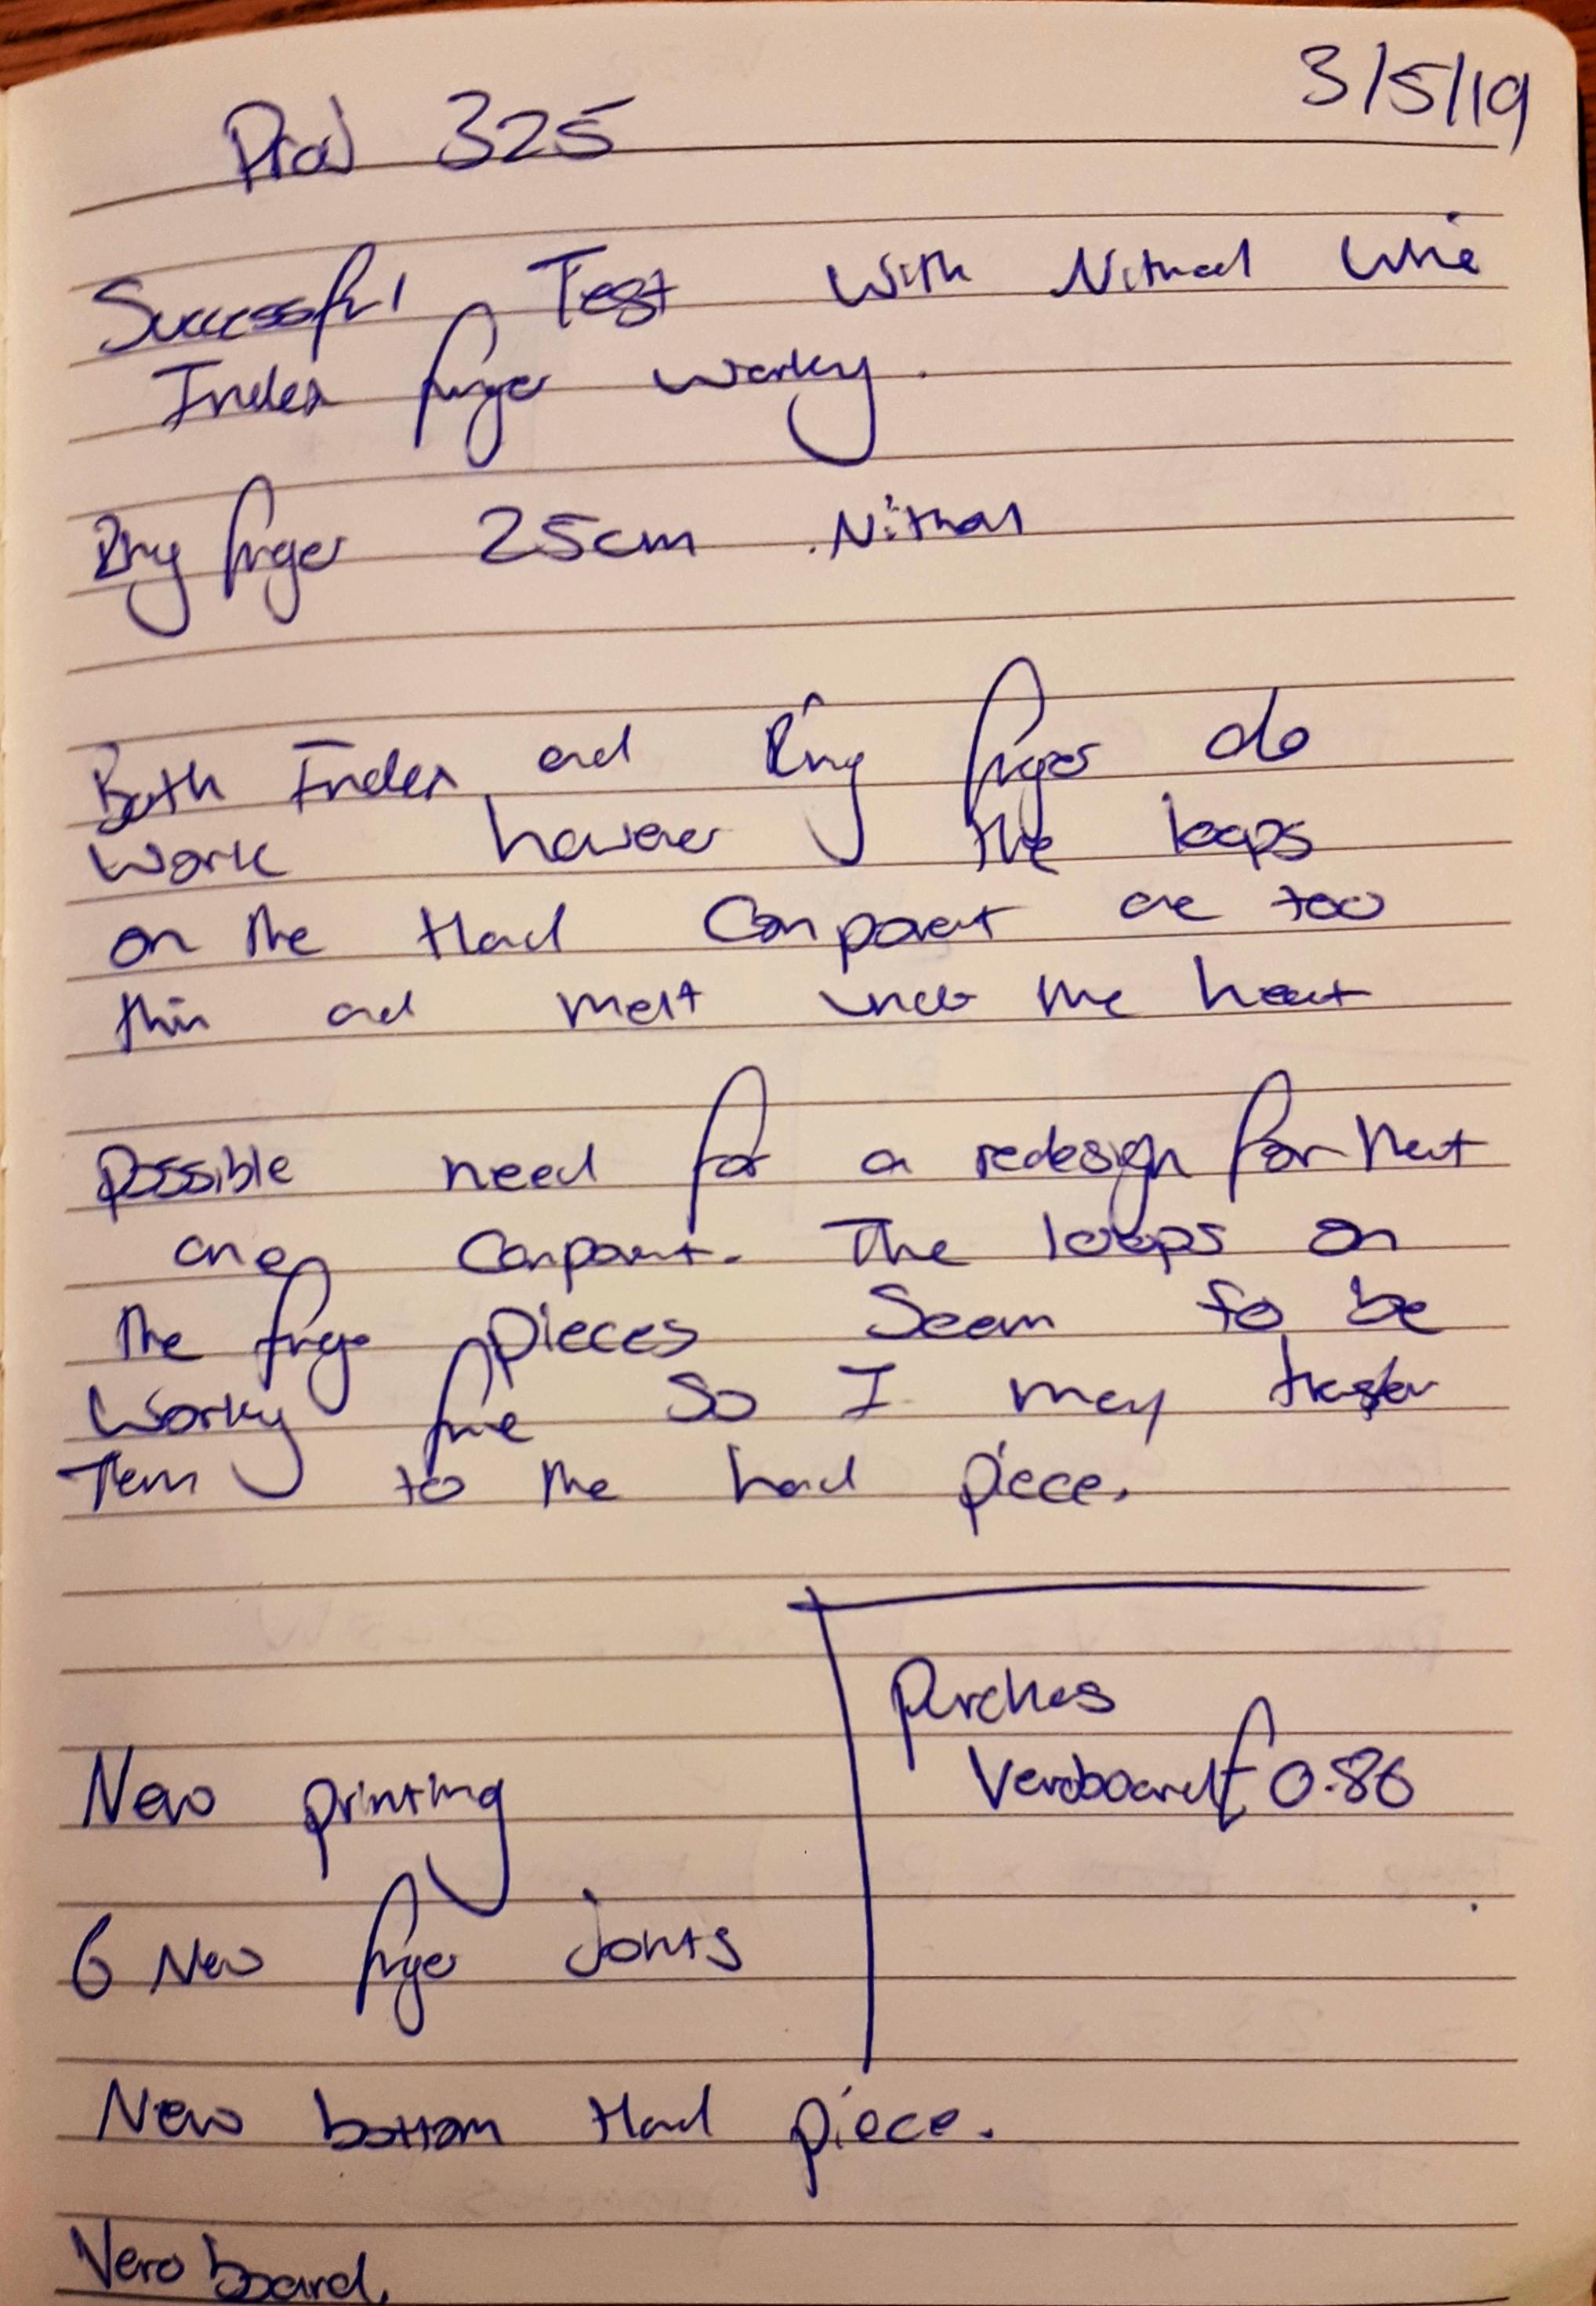 3/5/19
Proj 325
Successful Test With Nitinol Wire
Index finger working.
Ring finger 25cm Nitinol
Both Index and Ring finger do
work however the loops
on the Hand Component are too
thin and melt under the heat
possible need for a redesign for that
one component. The loops on
the finger pieces seem to be
Working fine so I may transfer
Them to the hand piece.
Purches
Veroboard £0.86
New printing
6 New finger Joints
New bottom Hand piece.
Vero board.